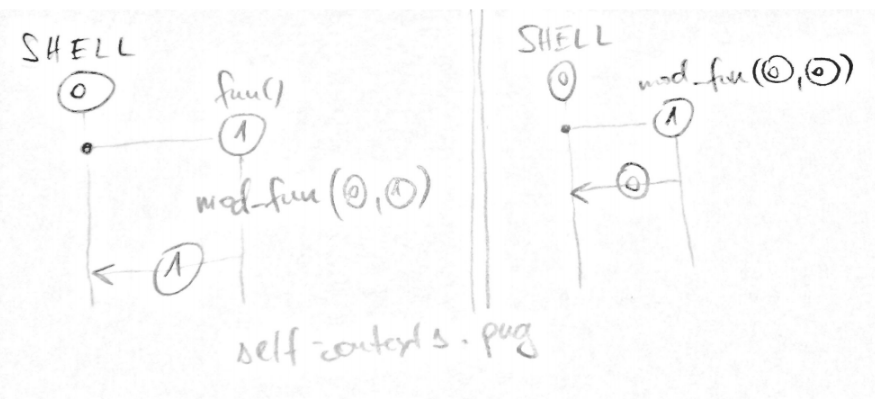 SHELL
0
fun()
1
mod_fun(0,1)
1
SHELL
0
mod_fun(0,0)
1
0
self-contexts.png